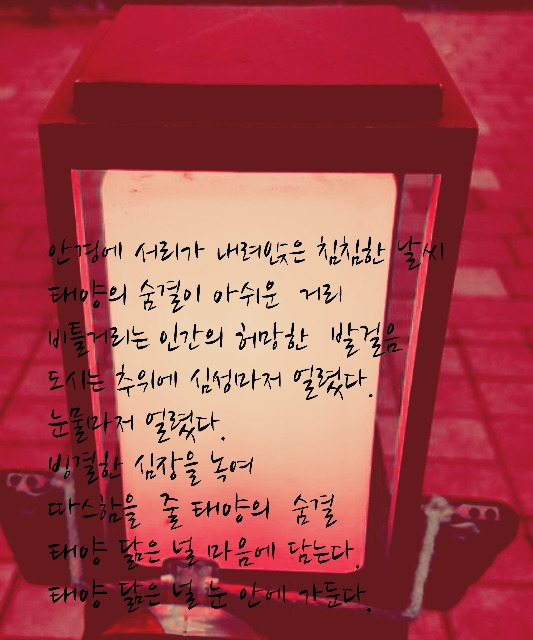 안경에 서리가 내려앉은 침침한 날씨
태양의 숨결이 아쉬운 거리
비틀거리는 인간의 허망한 발걸음
도시는 추위에 심성마저 얼렸다.
눈물마저 얼렸다.
빙결한 심장을 녹여
따스함을 줄 태양의 숨결
태양 닮은 널 마음에 담는다.
태양 닮은 널 눈 안에 가둔다.